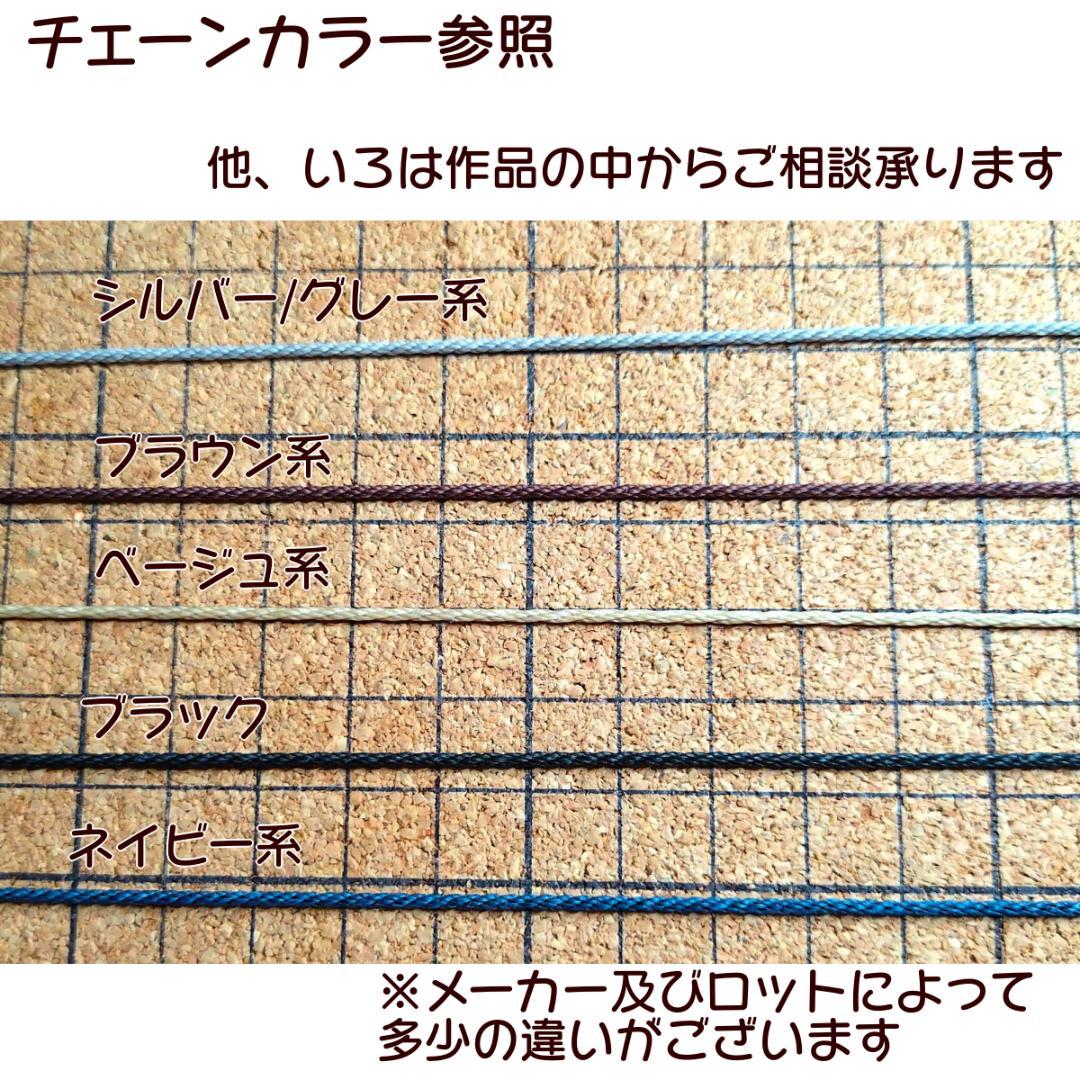 チェーンカラー参照
他、いろは作品の中からご相談承ります
シルバー/グレー系
ブラウン系
ベージュ系
ブラック
ネイビー系
※メーカー及びロットによって
多少の違いがございます